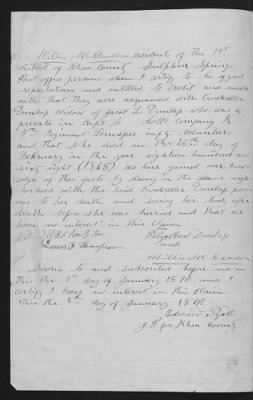 Willis McClendon resident of the 1st
district of Rhea County Sulphur Springs
Post office persons whom I certify to be of good
reputation and entitled to Credit and made
oath that they were acquainted with
Dunlap Widow of Jacob L Dunlap who was a
private in Capt Company
Regiment Tennessee infty Volunteer
and that she died on the 28th day of
February in the year eighteen hundred and
sixty eight (1868) we have gained our know
ledge of these facts by living in the same neigh
borhood with the Said Dunlap previ
ous to her death and seeing her body after
death before she was buried and that we
have no interest in this Claim
Dunlap
mark
James F Thompson
Willis McClendon
Sworn to and subscribed before me on
this the day of January 1870 and I
certify I have no interest in this claim
this the day of January 1870
Edward Pyott
J P for Rhea County